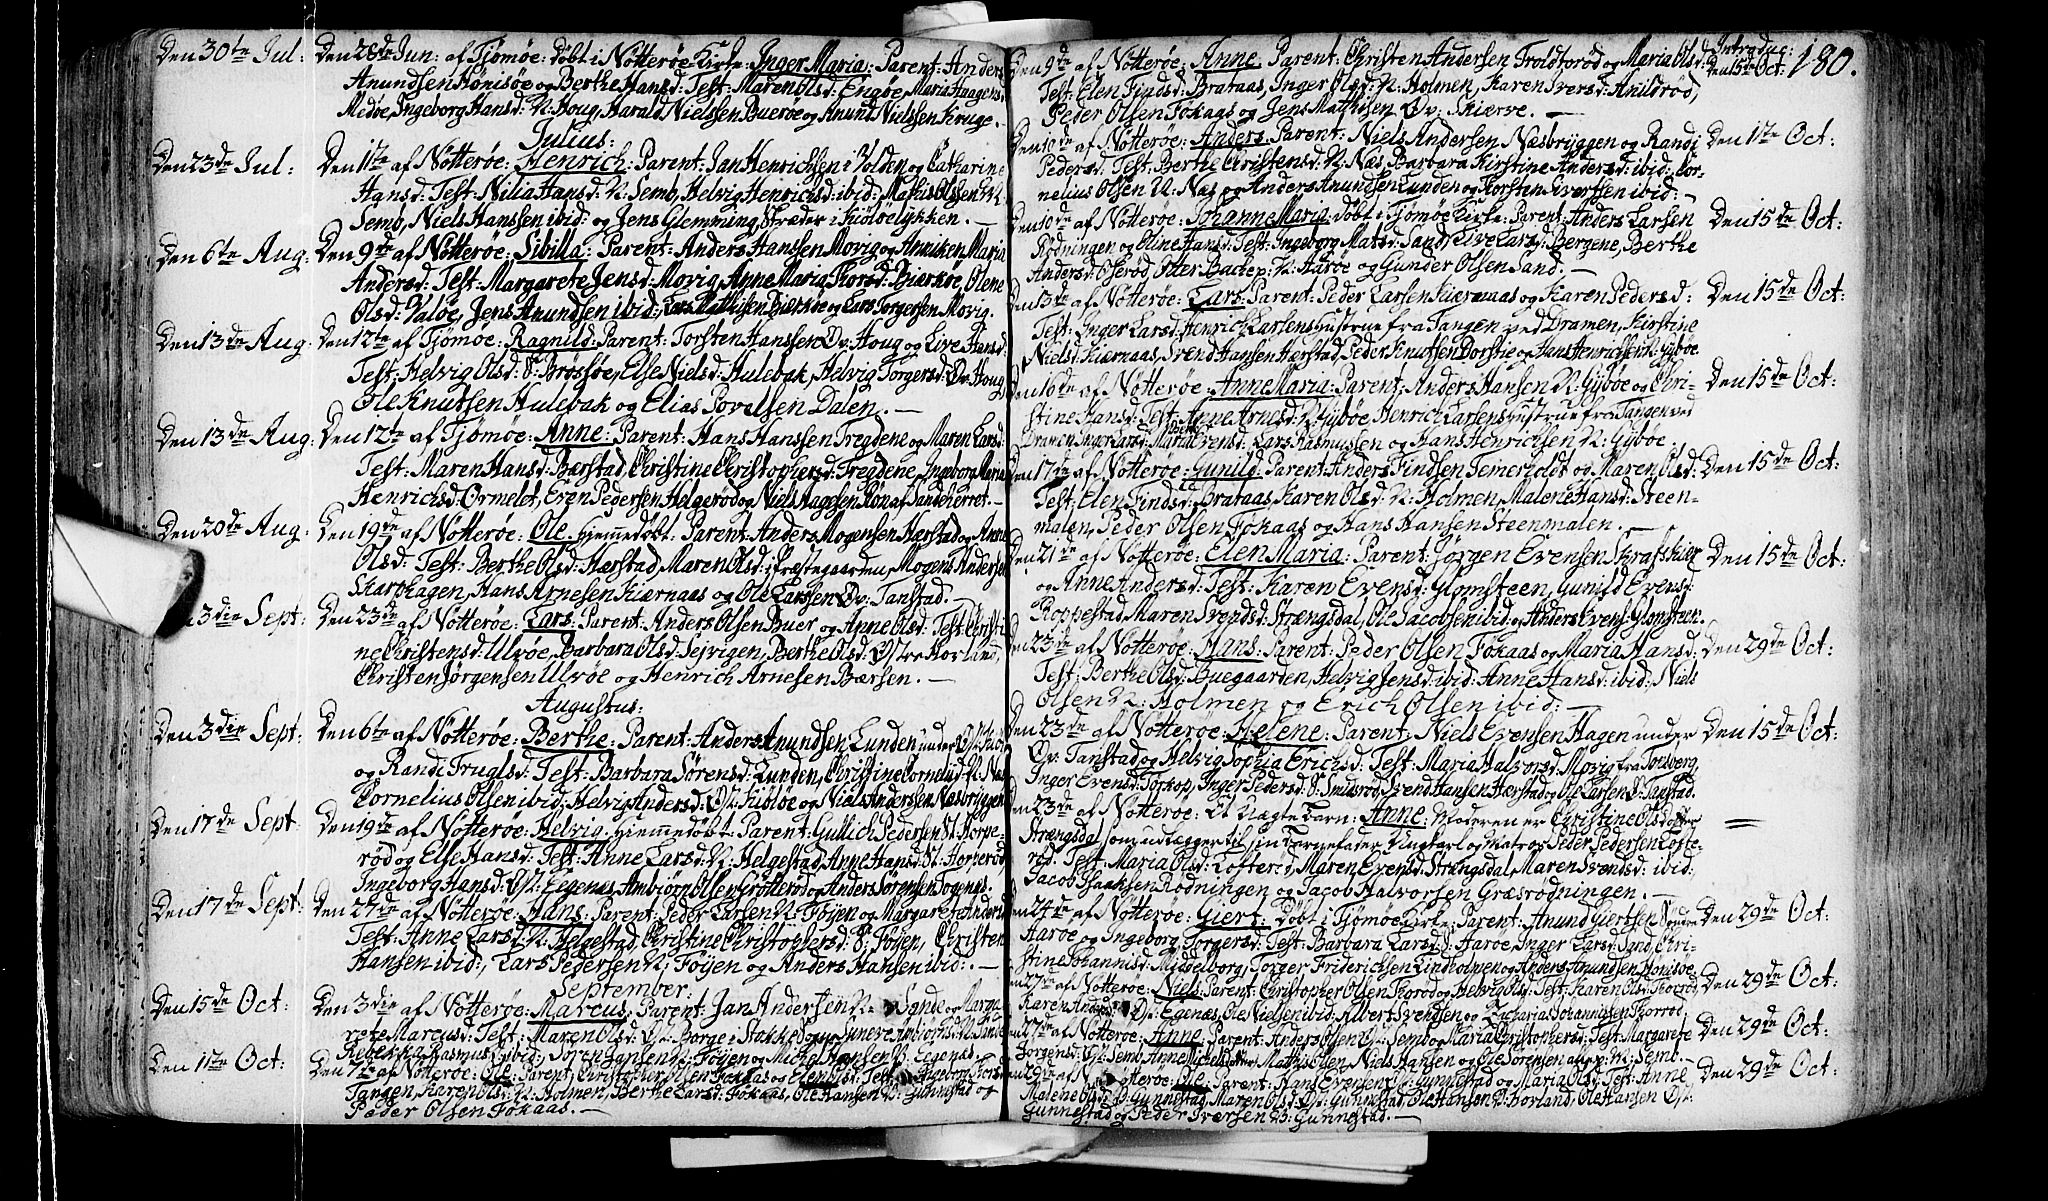 Den 30te Jul: Den 28de Jun: af Tjömøe: döbt i Nötterøe Kirke: Inger Maria: Parent: Anders
Amundsen Hönisöe og Berthe Hansd: Test: Maren Olsd: Engøe, Maria Haagens:
Medøe, Ingeborg Hansd: N: Houg, Harald Nielssen Buerøe og Anunt Nielssen Kruge.
Julius:
Den 23de Jul: Den 1te af Nötterøe: Henrich: Parent: Jan Henrichsen i Volden og Catharine
Hansd: Test: Nilia Hansd: N: Semb, Helvig Henrichsd: ibid: Mathis Olssen N:
Semb, Niels Hanssen ibid: og Jens Glemming Stræder i Kiölöelykken.
Den 6te Aug: Den 9te af Nötterøe: Sibilla: Parent: Anders Hanssen Movig og Anniken Maria
Andersd: Test: Margarete Jensd: Movig, Anne Maria Thorsd: Bierkøe, Olene
Olsd: Valöe, Jens Anundsen ibid:, Lars Mathisen Bierkøe og Lars Torgersen Movig.
Den 13de Aug: Den 12te af Tjömøe: Ragnild: Parent: Torsten Hanssen Öv: Houg og Live Hansd:
Test: Helvig Olsd: S: Brøssøe, Else Nielsd: Hulebak, Helvig Torgersd: Öv: Houg
Ole Knutsen Hulebak og Elias Povelsen Dalen.
Den 13de Aug: Den 12te af Tjömøe: Anne: Parent: Hans Hanssen Tregdene og Maren Larsd:
Test: Maren Hansd: Bærstad, Christine Christophersd: Tregdene, Ingeborg Maria
Henrichsd: Ormelöt, Even Pedersen Helgerød og Niels Aagesen Ron af Sandeherret.
Den 20de Aug: Den 19de af Nötterøe: Ole hjemmedöbt. Parent: Anders Mogensen Hærstad og Anne
Olsd: Test: Berthe Olsd: Hærstad, Maren Olsd: i Præstegaarden, Mogens Andersen
Skarphagen, Hans Arnesen Kiærnaas og Ole Larssen Öv: Tanstad.
3die Sept: Den 23de af Nötterøe: Lars: Parent: Anders Olsen Buer og Anne Olsd: Test: Christi-
ne Christensd: Ulvøe, Barbara Olsd: Sejvigen, Berthe Olsd: Östre Borland,
Christen Jørgensen Ulvøe og Henrich Arnesen Bærsen.
Augustus:
Den 3die Sept: Den 6te af Nötterøe: Berthe: Parent: Anders Anundsen Lunden under
og Randi Truglsd: Test: Barbara Sörensd: Lunden, Christine Cornelid: N: Næs
Cornelius Olsen ibid: Helvig Andersd: Öst: Kiölöe og Niels Andersen Næsbryggen
Den 17de Sept: Den 19de af Nötterøe: Helvig, hjemmedöbt: Parent: Gullich Pedersen St: Horpe-
rød og Else Hansd: Test: Anne Larsd: N: Helgestad, Anne Hansd: St: Horperød,
Ingeborg Hansd: Öst: Egenæs, Ambjörn Olsen Gröttesrod og Anders Sörensen
Den 17de Sept: Den 27de af Nötterøe: Hans: Parent: Peder Larsen N: Föyen og Margarete Andersd:
Test: Anne Larsd: N: Helgestad, Christine Christophersd: S: Föyen, Christen
Hansen ibid:, Lars Pedersen N: Föyen og Anders Hansen ibid:.
September:
Den 15de Oct: Den 3die af Nötterøe: Marcus: Parent: Jan Andersen N: Sande og Marga-
rete Marcusd: Test: Maren Olsd: Öst: Borge i Stokke
Rebekka Rasmusd: ibid: Sören Jansen N: Föyen og Michel Hansen V: Egenæs.
Den 1te Oct: Den 7de af Nötterøe: Ole: Parent: Christopher Olsen Fokaas og Elen Test: Ingeborg
Tangen, Karen Olsd: N: Holmen, Berthe Larsd: Fokaas, Ole Hansen V: Gunnestad og
Peder Olsen Fokaas.
180.
Introduc:
Den 9de af Nötterøe: Anne Parent: Christen Andersen Troldtorød og Maria Olsd: Den 15de Oct:
Test: Elen Findsd: Brataas, Inger Olsd: N: Holmen, Karen Iversd: Anildrød,
Peder Olsen Fokaas og Jens Mathisen Öv: Skierve.
Den 10de af Nötterøe: Anders. Parent: Niels Andersen Næsbryggen og Randi Den 1te Oct:
Pedersd: Test: Berthe Christensd: N: Næs, Barbara Kirstine Andersd: ibid: Cor-
nelius Olsen N: Næs og Anders Anundsen Lunden og Torsten Iverssen ibid:
Den 10de af Nötterøe: Johanne Maria: döbt i Tjömøe Kirke: Parent: Anders Larsen Den 15de Oct:
Rödningen og Oline Hansd: Test: Ingeborg Matsd: Sand, Live Larsd: Bergene, Berthe
Andersd: Oserød, Otter N: Aarøe og Gunder Olsen Sand.
Den 13de af Nötterøe: Lars: Parent: Peder Larsen Kiærnaas og Karen Pedersd: Den 15de Oct:
Test: Inger Larsd: Henrich Larsens Hustrue fra Tangen ved Dramen, Kirstine
Nielsd: Kiærnaas, Svend Hansen Hærstad, Peder Knutsen Borstie og Hans Henrichsen N: Gybøe
Den 16de af Nötterøe: Anne Maria: Parent: Anders Hansen N: Gybøe og Chri- Den 15de Oct:
stine Hansd: Test: Anne Arnesd: N: Gybøe, Henrich Larsens Hustrue fra Tangen ved
Dramen Inger Larsd: Maria Evensd: Lars Rasmussen og Hans Henrichsen N: Gybøe.
Den 17de af Nötterøe: Gunild: Parent: Anders Findsen Temerholdt og Maren Olsd: Den 15de Oct:
Test: Elen Findsd: Brataas, Karen Olsd: N: Holmen, Malene Hansd: Steen-
malen, Peder Olsen Fokaas og Hans Hansen Steenmalen.
Den 21de af Nötterøe: Elen Maria: Parent: Jørgen Evensen Skrafskiær Den 15de Oct:
og Anne Andersd: Test: Karen Evensd: Glomsteen, Gunild Evensd:
Roppestad, Maren Svendsd: Strængsdal, Ole Jacobsen ibid: og Anders Evens: Glomsteen.
Den 23de af Nötterøe: Hans: Parent: Peder Olsen Fokaas og Maria Hansd: Den 29de Oct:
Test: Berthe Olsd: Buegaarden, Helvig Jensd: ibid: Anne Hansd: ibid:, Niels
Olsen N: Holmen og Erich Olsen ibid:
Den 23de af Nötterøe: Helene: Parent: Niels Evensen Hagen under Den 15de Oct:
Öv: Tanstad og Helvig Sophia Erichsd: Test: Maria Halvorsd: Movig fra Tolberg,
Inger Evensd: Torkop, Inger Pedersd: S: Smidsrød, Svend Hansen Hærstad og Ole Larsen Ö: Tanstad.
Den 23de af Nötterøe: Et Uægte Barn: Anne: Moderen er Christine Olsd:
Strængsdal som udlægger til sin Barnefader Ungkarl og Matros Peder Pedersen Lofte-
rød: Test: Maria Olsd: Lofterød, Maren Evensd: Strængsdal, Maren Svendsd: ibid:,
Jacob Isaaksen Rødningen og Jacob Halvorsen Græsrødningen.
Den 24de af Nötterøe: Giert: Döbt i Tjömøe Kirke: Parent: Anund Giertsen Söndre Den 29de Oct:
Aarøe og Ingeborg Torgersd: Test: Barbara Larsd: S: Aarøe, Inger Larsd: Sand, Chri-
stine Johannisd: Middelborg, Torger Friderichsen Lindholmen og Anders Amundsen Hönisöe
Den 27de af Nötterøe: Niels: Parent: Christopher Olsen Thorød og Helvig Olsd: Test: Karen Olsd: Thorød, Den 29de Oct:
Karen Andersd: Öst: Egenæs, Ole Nielsen ibid: Albert Svendsen og Zacharias Johannissen Thorød.
Den 27de af Nötterøe: Anne: Parent: Anders Olsen Öst: Semb og Maria Christophersd: Test: Margarete Den 29de Oct:
Jörgensd: Öst: Semb, Anne Michelsd: Mathis Olsen, Niels Hansen og Ole Sörensen N: Semb.
Den 29de af Nötterøe: Ole: Parent: Hans Evensen V: Gunnestad og Maria Olsd: Test: Anne Den 29de Oct:
Malene Olsd: V: Gunnestad, Maren Olsd: Öst: Gunnestad Ole Hansen V: Borland, Ole Hansen Öst:
Gunnestad og Peder Iversen V: Gunnestad.